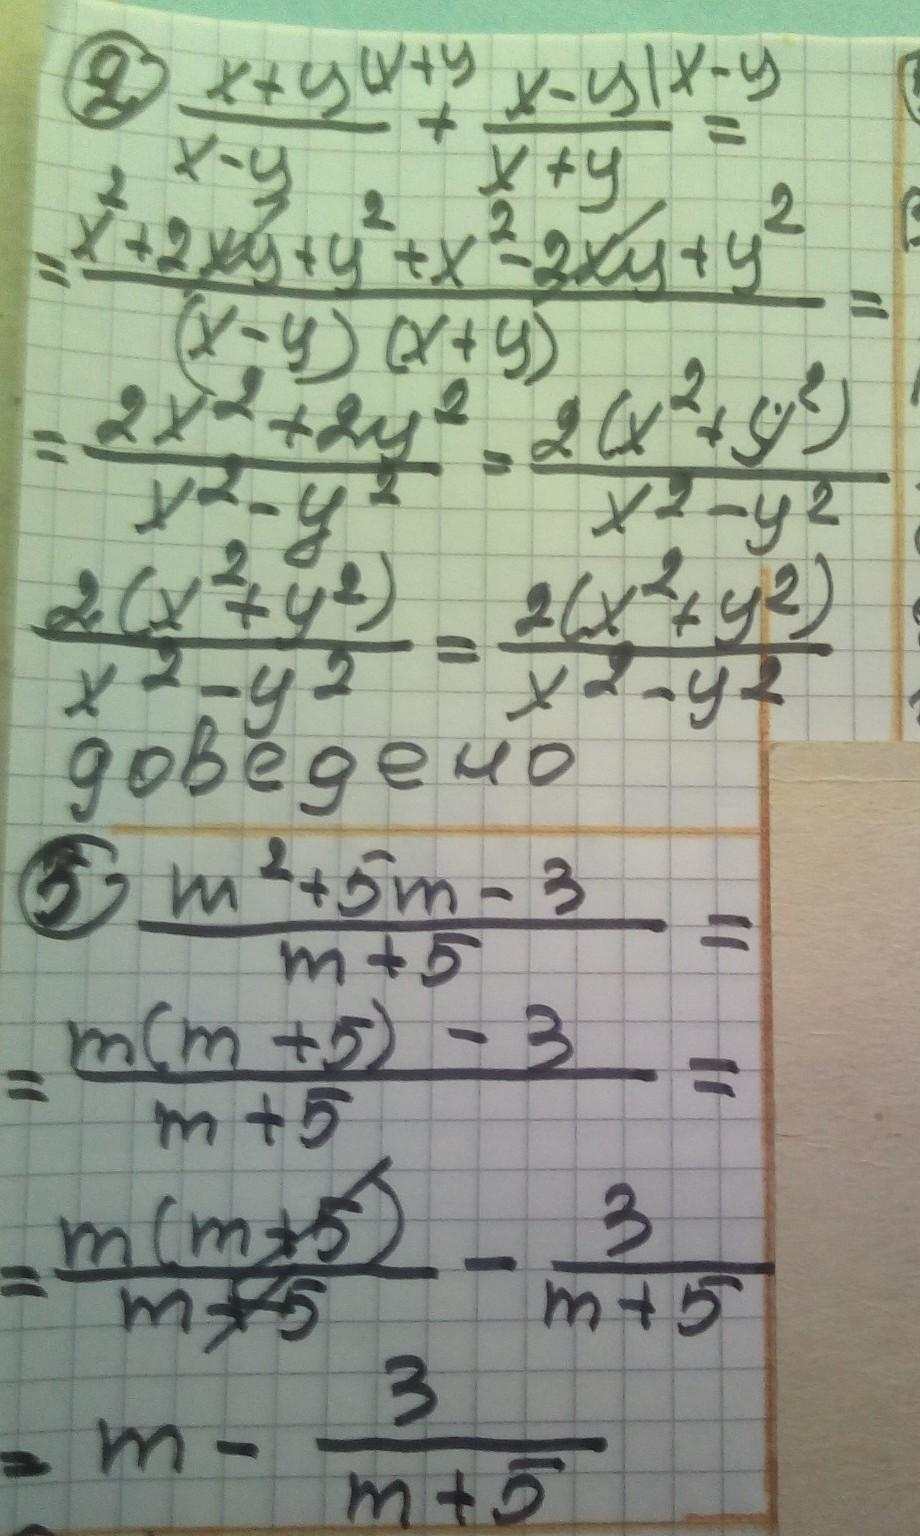 ② (x+y)/(x-y) |x+y + (x-y)/(x+y) |x-y =
= (x²+2xy+y²+x²-2xy+y²)/((x-y)(x+y)) =
= (2x²+2y²)/(x²-y²) = 2(x²+y²)/(x²-y²)
2(x²+y²)/(x²-y²) = 2(x²+y²)/(x²-y²)
доведено
⑤ (m²+5m-3)/(m+5) =
= (m(m+5)-3)/(m+5) =
= m(m+5)/(m+5) - 3/(m+5)
= m - 3/(m+5)